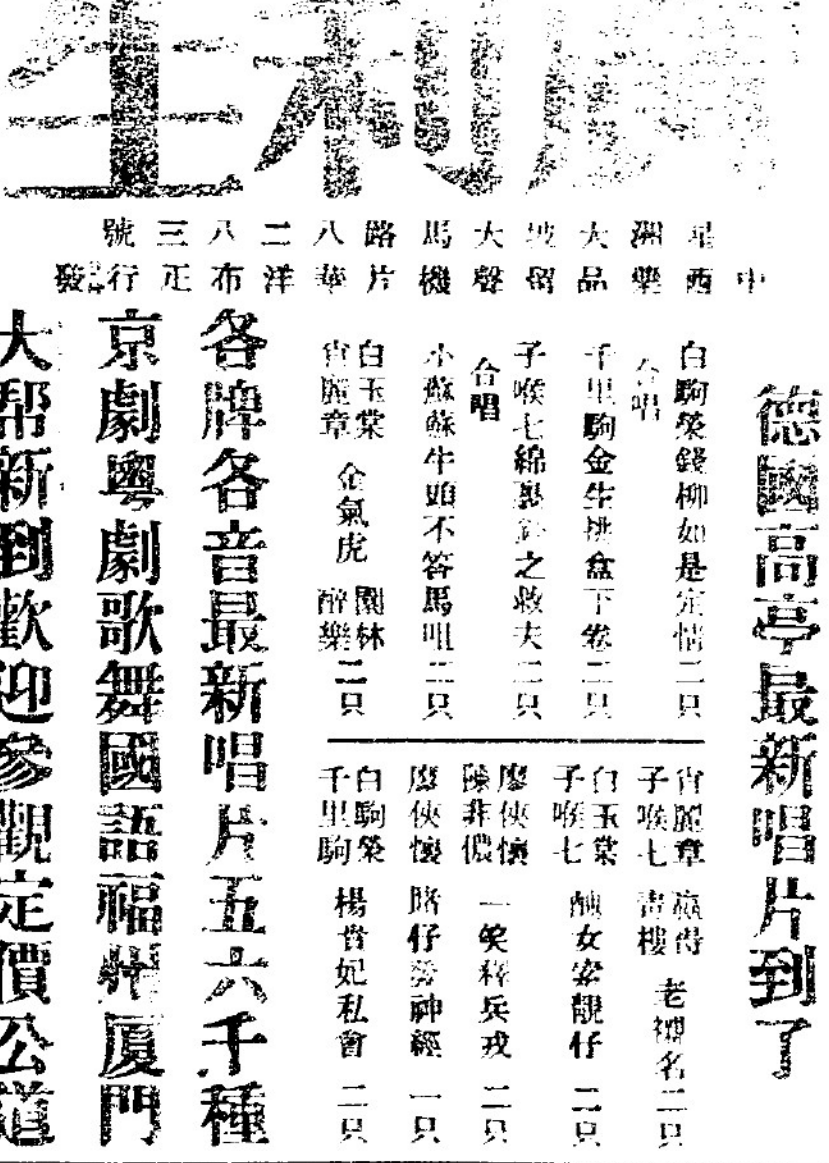 廣利生
星洲大坡大馬路八二八三號
中西樂品留聲機片華洋布疋行發
德國高亭最新唱片到了
白駒榮錢柳如是定情二只
合唱
千里駒金生挑盒下卷二只
子喉七綿裏針之救夫二只
合唱
小蘇蘇牛頭不答馬咀二只
白玉棠
肖麗章
金氣虎
園林
醉樂
二只
肖麗章
子喉七
贏得
青樓
老
名二只
白玉棠
子喉七
醜女安靚仔
二只
廖俠懷
陳非儂
一笑釋兵戎
二只
廖俠懷
賭仔發神經
一只
白駒榮
千里駒
楊貴妃私會
二只
各牌各音最新唱片五六千種
京劇粵劇歌舞國語福州廈門
大帮新到歡迎參觀定價公道